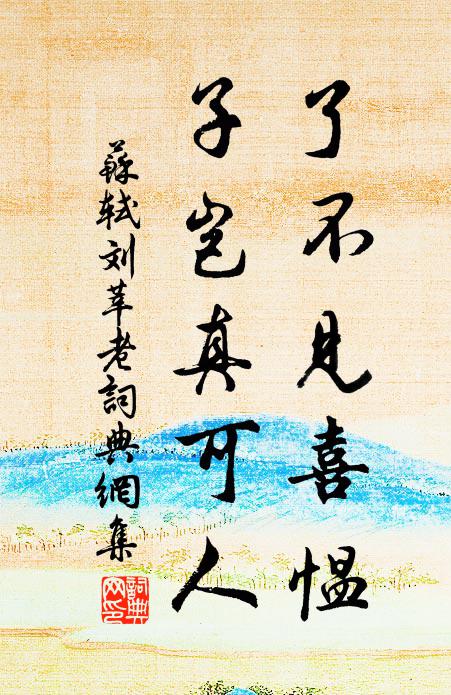 了不見喜愠
子岂真可人
蘇軾刘莘老詞典網集
詞典
网印